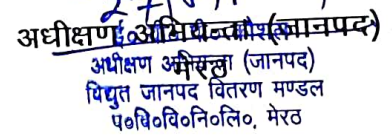 अधीक्षण अभियन्ता (जानपद)
मेरठ
अधीक्षण अभियन्ता (जानपद)
विद्युत जानपद वितरण मण्डल
प०वि०वि०नि०लि०, मेरठ